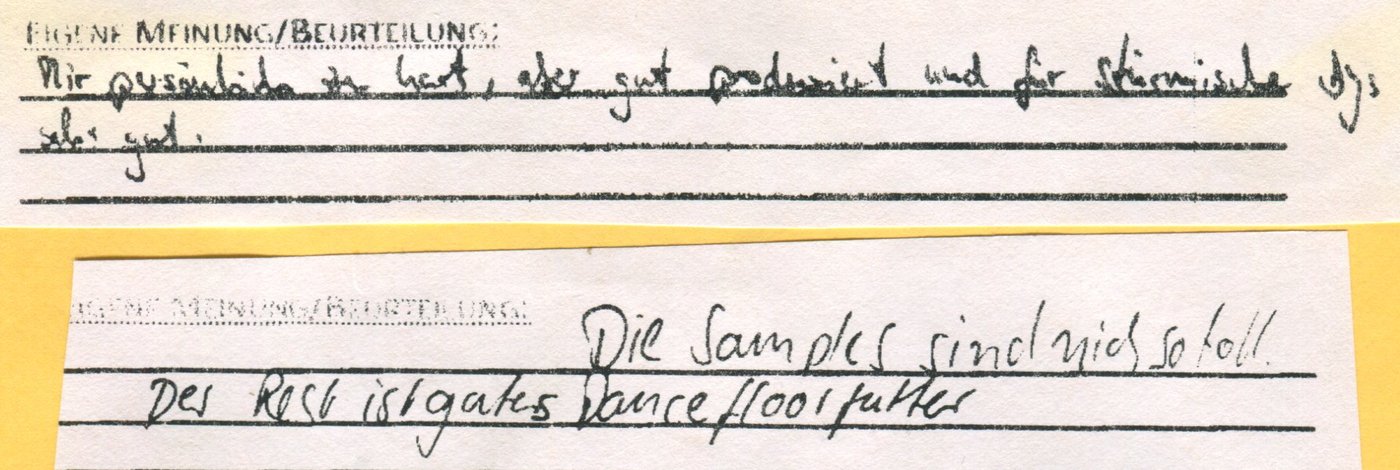 EIGENE MEINUNG/BEURTEILUNG:
Mir persönlich zu hart, aber gut produziert und für stürmische DJs
sehr gut.
EIGENE MEINUNG/BEURTEILUNG:
Die Samples sind nich so toll.
Der Rest ist gutes Dancefloorfutter